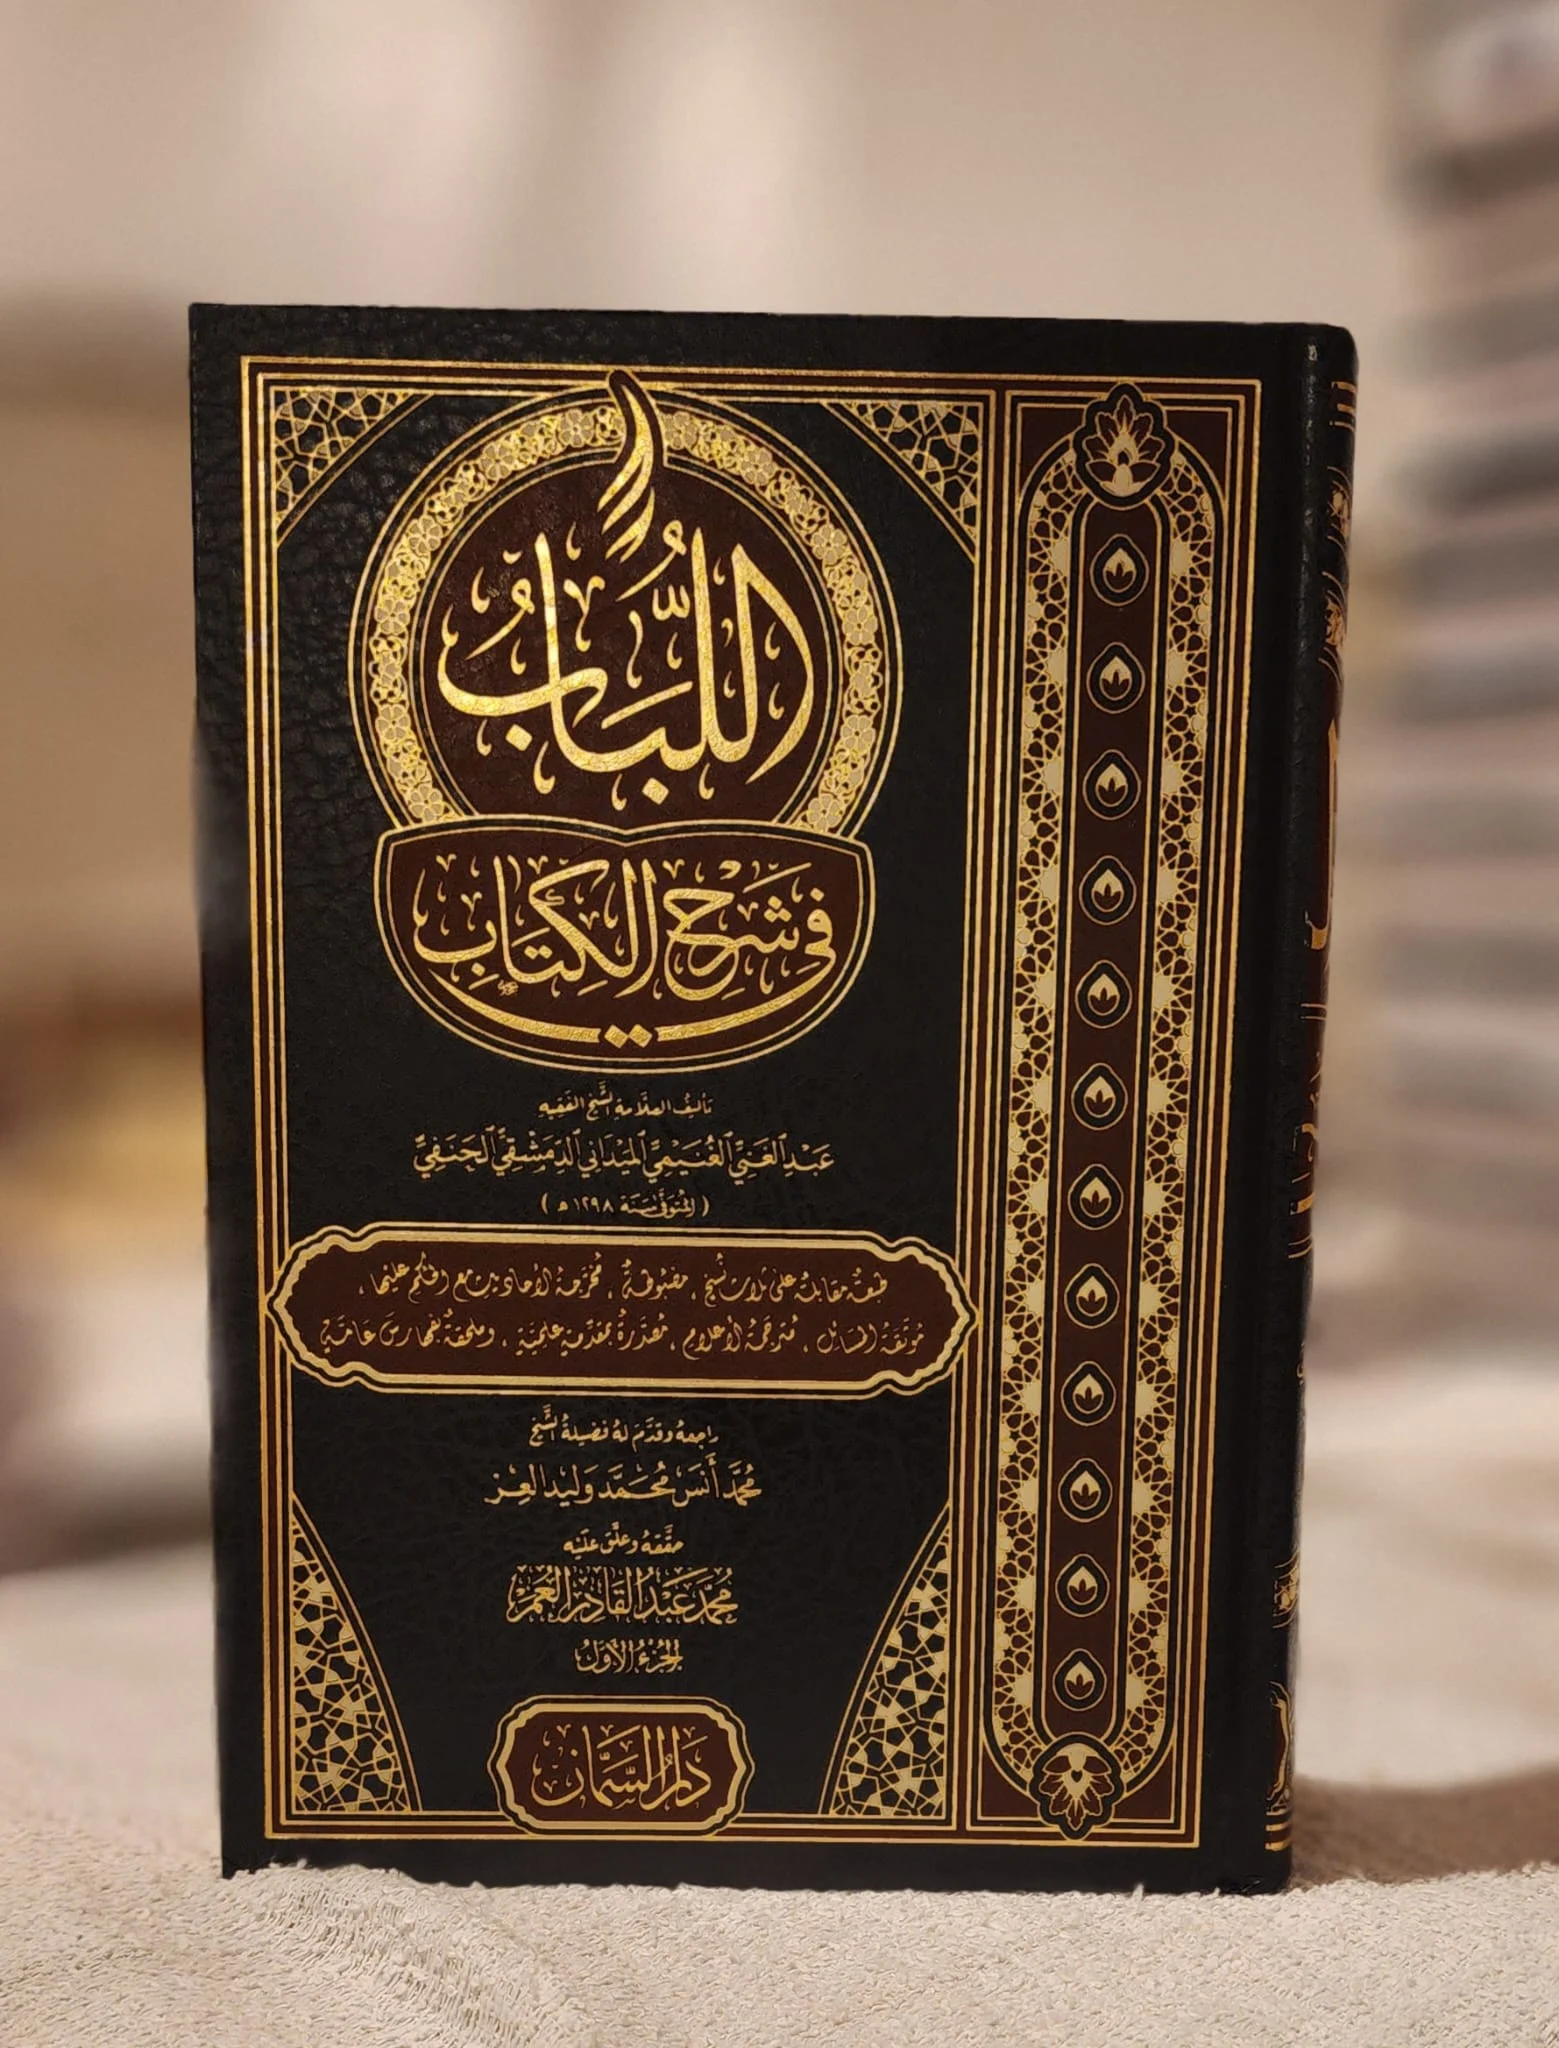 اللُّبَابُ
فِي شَرْحِ الكِتَابِ
تأليف العلّامة الشّيخ الفقيه
عَبْدِ الغَنِيّ الغُنَيْمِيّ المَيْدَانِي الدِّمَشْقِيّ الحَنَفِيّ
(المتوفى سنة ١٢٩٨ هـ)
طبعة مقابلة على ثلاث نُسَخ، مضبوطة، مُخرّجة الأحاديث مع الحكم عليها،
مُوثّقة المسائل، مُترجَمة الأعلام، مُصَدّرةٌ بمقدّمةٍ علميّةٍ، وملحقةٌ بفهارسَ عامّةٍ
راجعه وقدّم له فضيلة الشّيخ
مُحمّد أنَس مُحَمَّد وَليد العِز
حقّقه وعلّق عليه
مُحمّد عَبْدُ القَادِر العُمَر
الجُزءُ الأوّلُ
دَارُ السَّمَّان